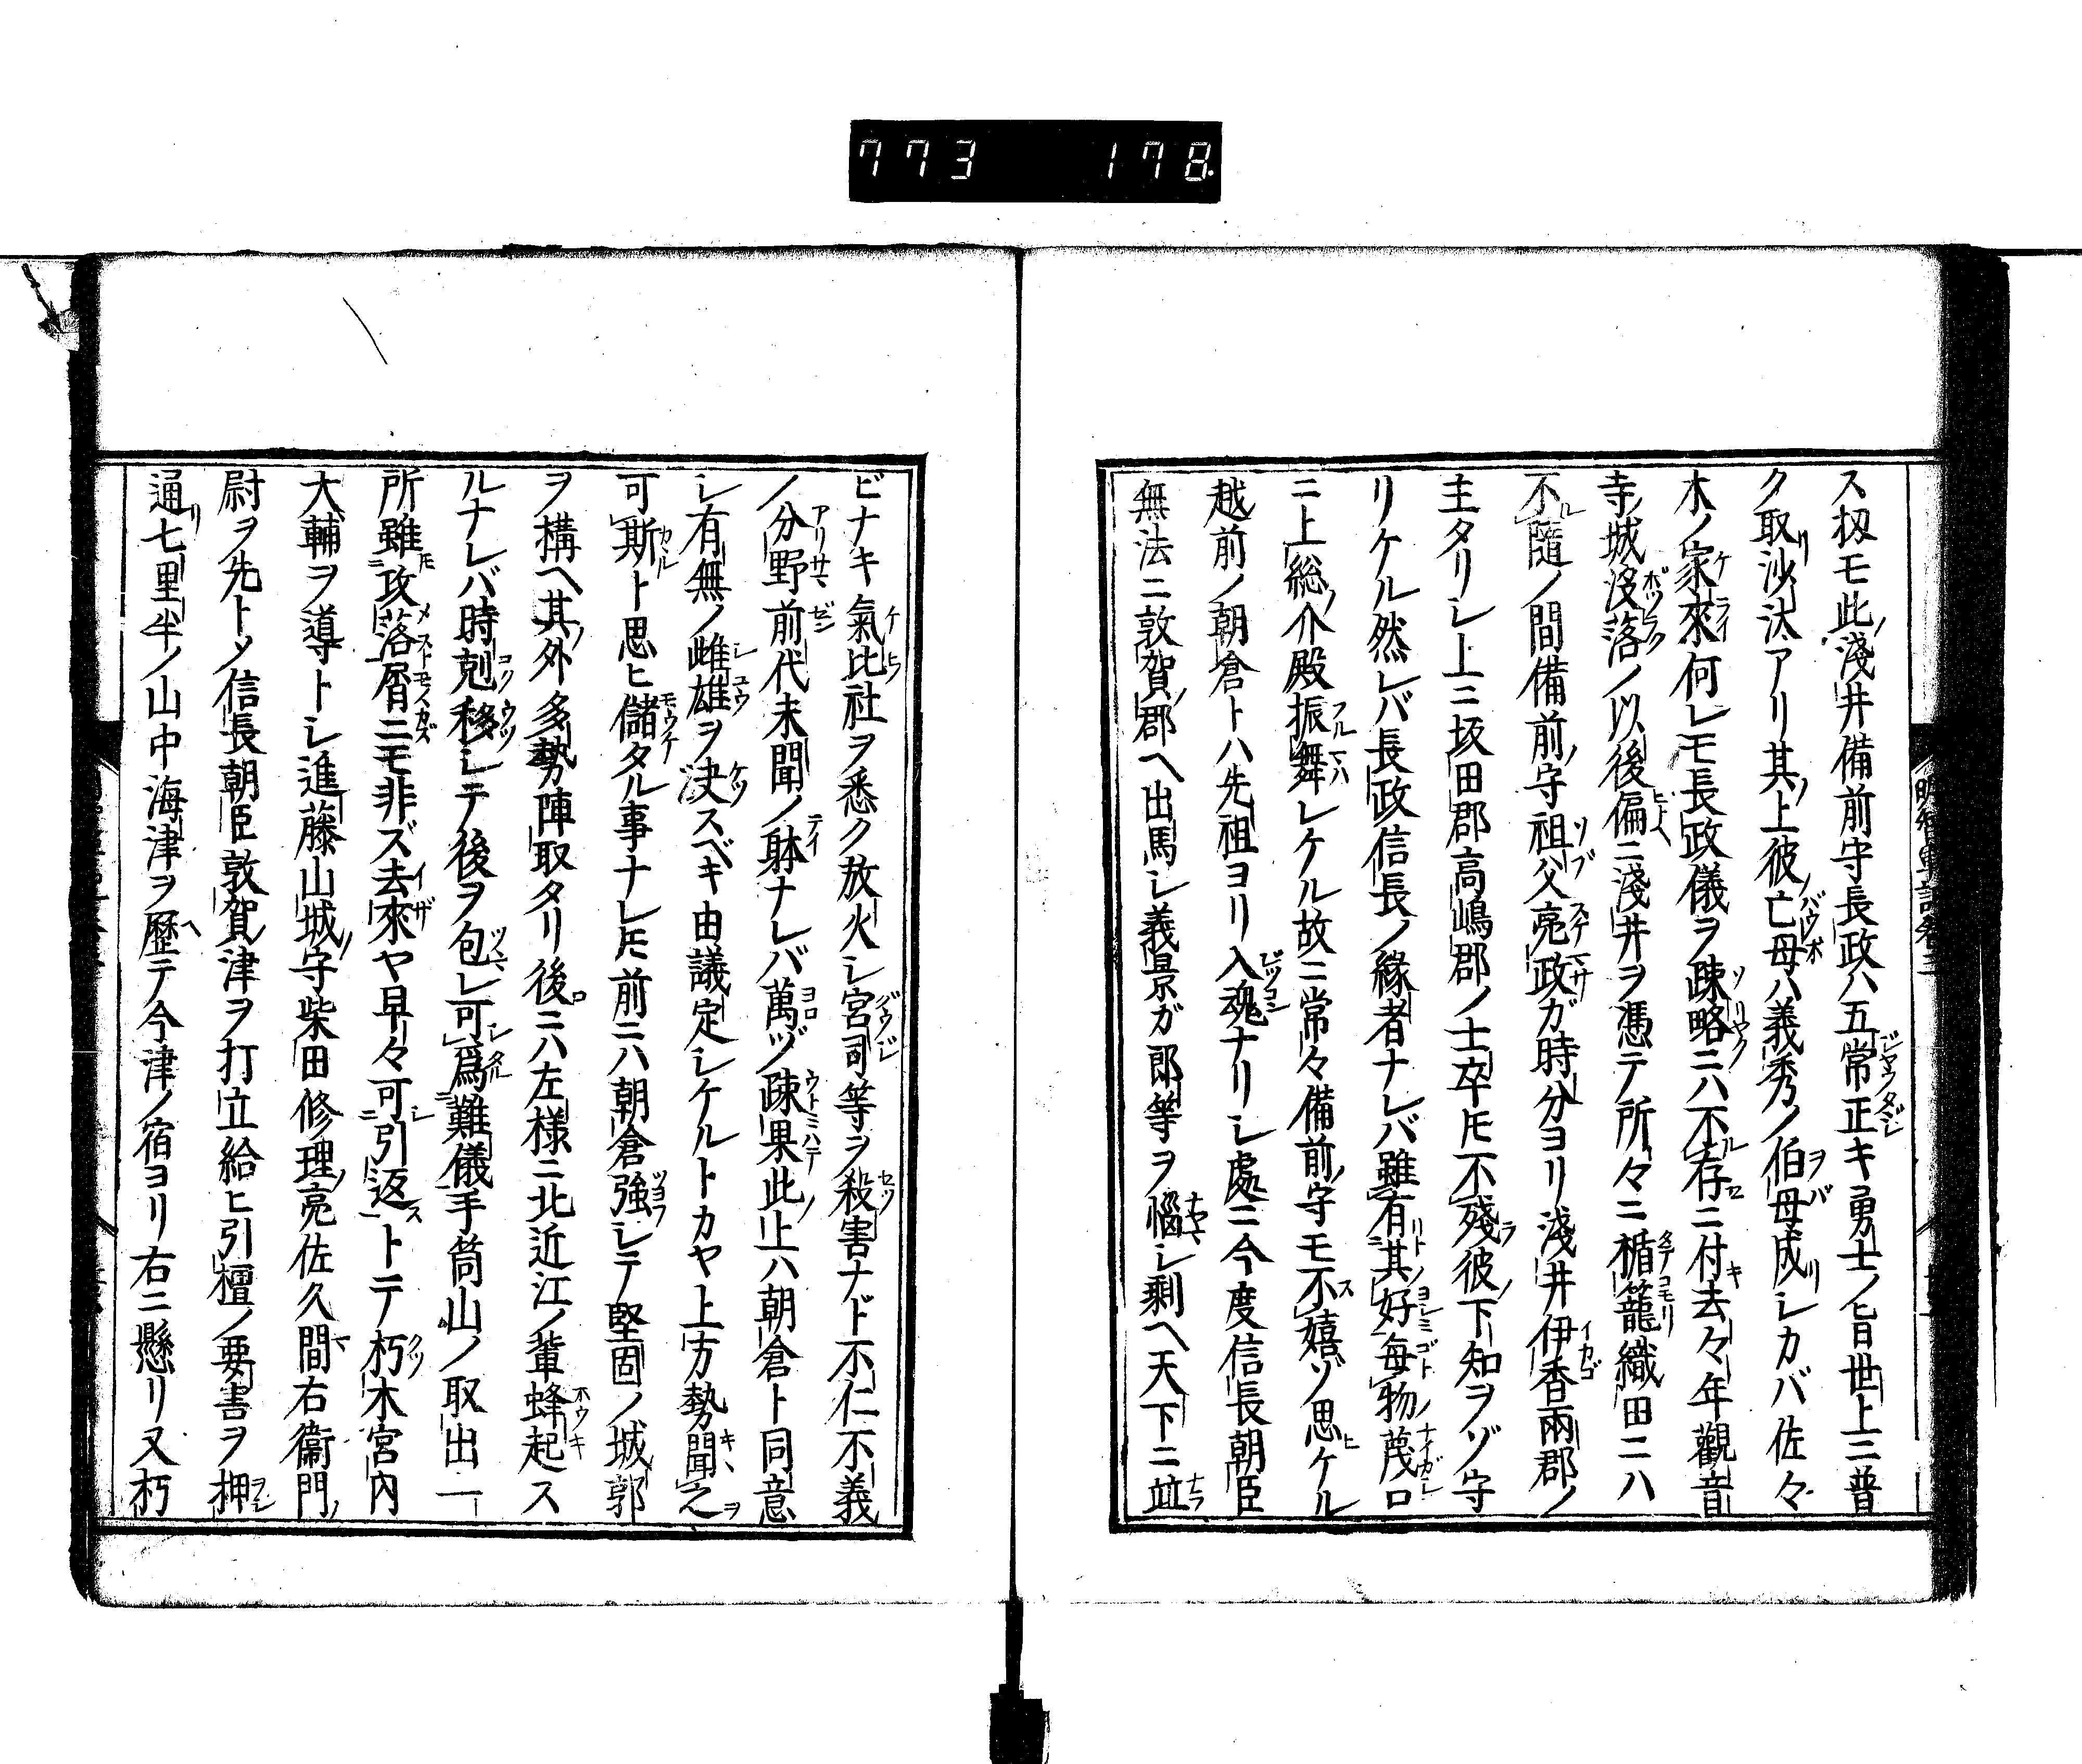 773 178
ス扨モ此淺井備前守長政ハ五常正キ勇士ノ旨世上ニ普
ク取沙汰アリ其上彼亡母ハ義秀ノ伯母成シカバ佐々
木ノ家來何レモ長政儀ヲ疎略ニハ不存ニ付去々年觀音
寺城没落ノ以後偏ニ淺井ヲ憑テ所々ニ楯籠織田ニハ
不隨ノ間備前守祖父亮政ガ時分ヨリ淺井伊香兩郡ノ
主タリシ上ニ坂田郡高嶋郡ノ士卒𪜈不殘彼下知ヲゾ守
リケル然レバ長政信長ノ緣者ナレバ雖有其好毎物蔑ロ
ニ上総介殿振舞レケル故ニ常々備前守モ不嬉ゾ思ケル
越前ノ朝倉トハ先祖ヨリ入魂ナリシ處ニ今度信長朝臣
無法ニ敦賀郡ヘ出馬シ義景ガ郎等ヲ惱シ剰ヘ天下ニ竝
ビナキ氣比社ヲ悉ク放火シ宮司等ヲ殺害ナド不仁不義
ノ分野前代未聞ノ躰ナレバ萬ヅ疎果此上ハ朝倉ト同意
シ有無ノ雌雄ヲ决スベキ由議定シケルトカヤ上方勢聞之
可斯ト思ヒ儲タル事ナレ𪜈前ニハ朝倉強シテ堅固ノ城郭
ヲ構ヘ其外多勢陣取タリ後ニハ左様ニ北近江ノ輩蜂起ス
ルナレバ時剋移シテ後ヲ包レ可爲難儀手筒山ノ取出一
所雖攻落屑ニモ非ズ去來ヤ早々可引返トテ朽木宮内
大輔ヲ導トシ進藤山城守柴田修理亮佐久間右衞門
尉ヲ先トメ信長朝臣敦賀津ヲ打立給ヒ引檀ノ要害ヲ押
通七里半ノ山中海津ヲ歴テ今津ノ宿ヨリ右ニ懸リ又朽